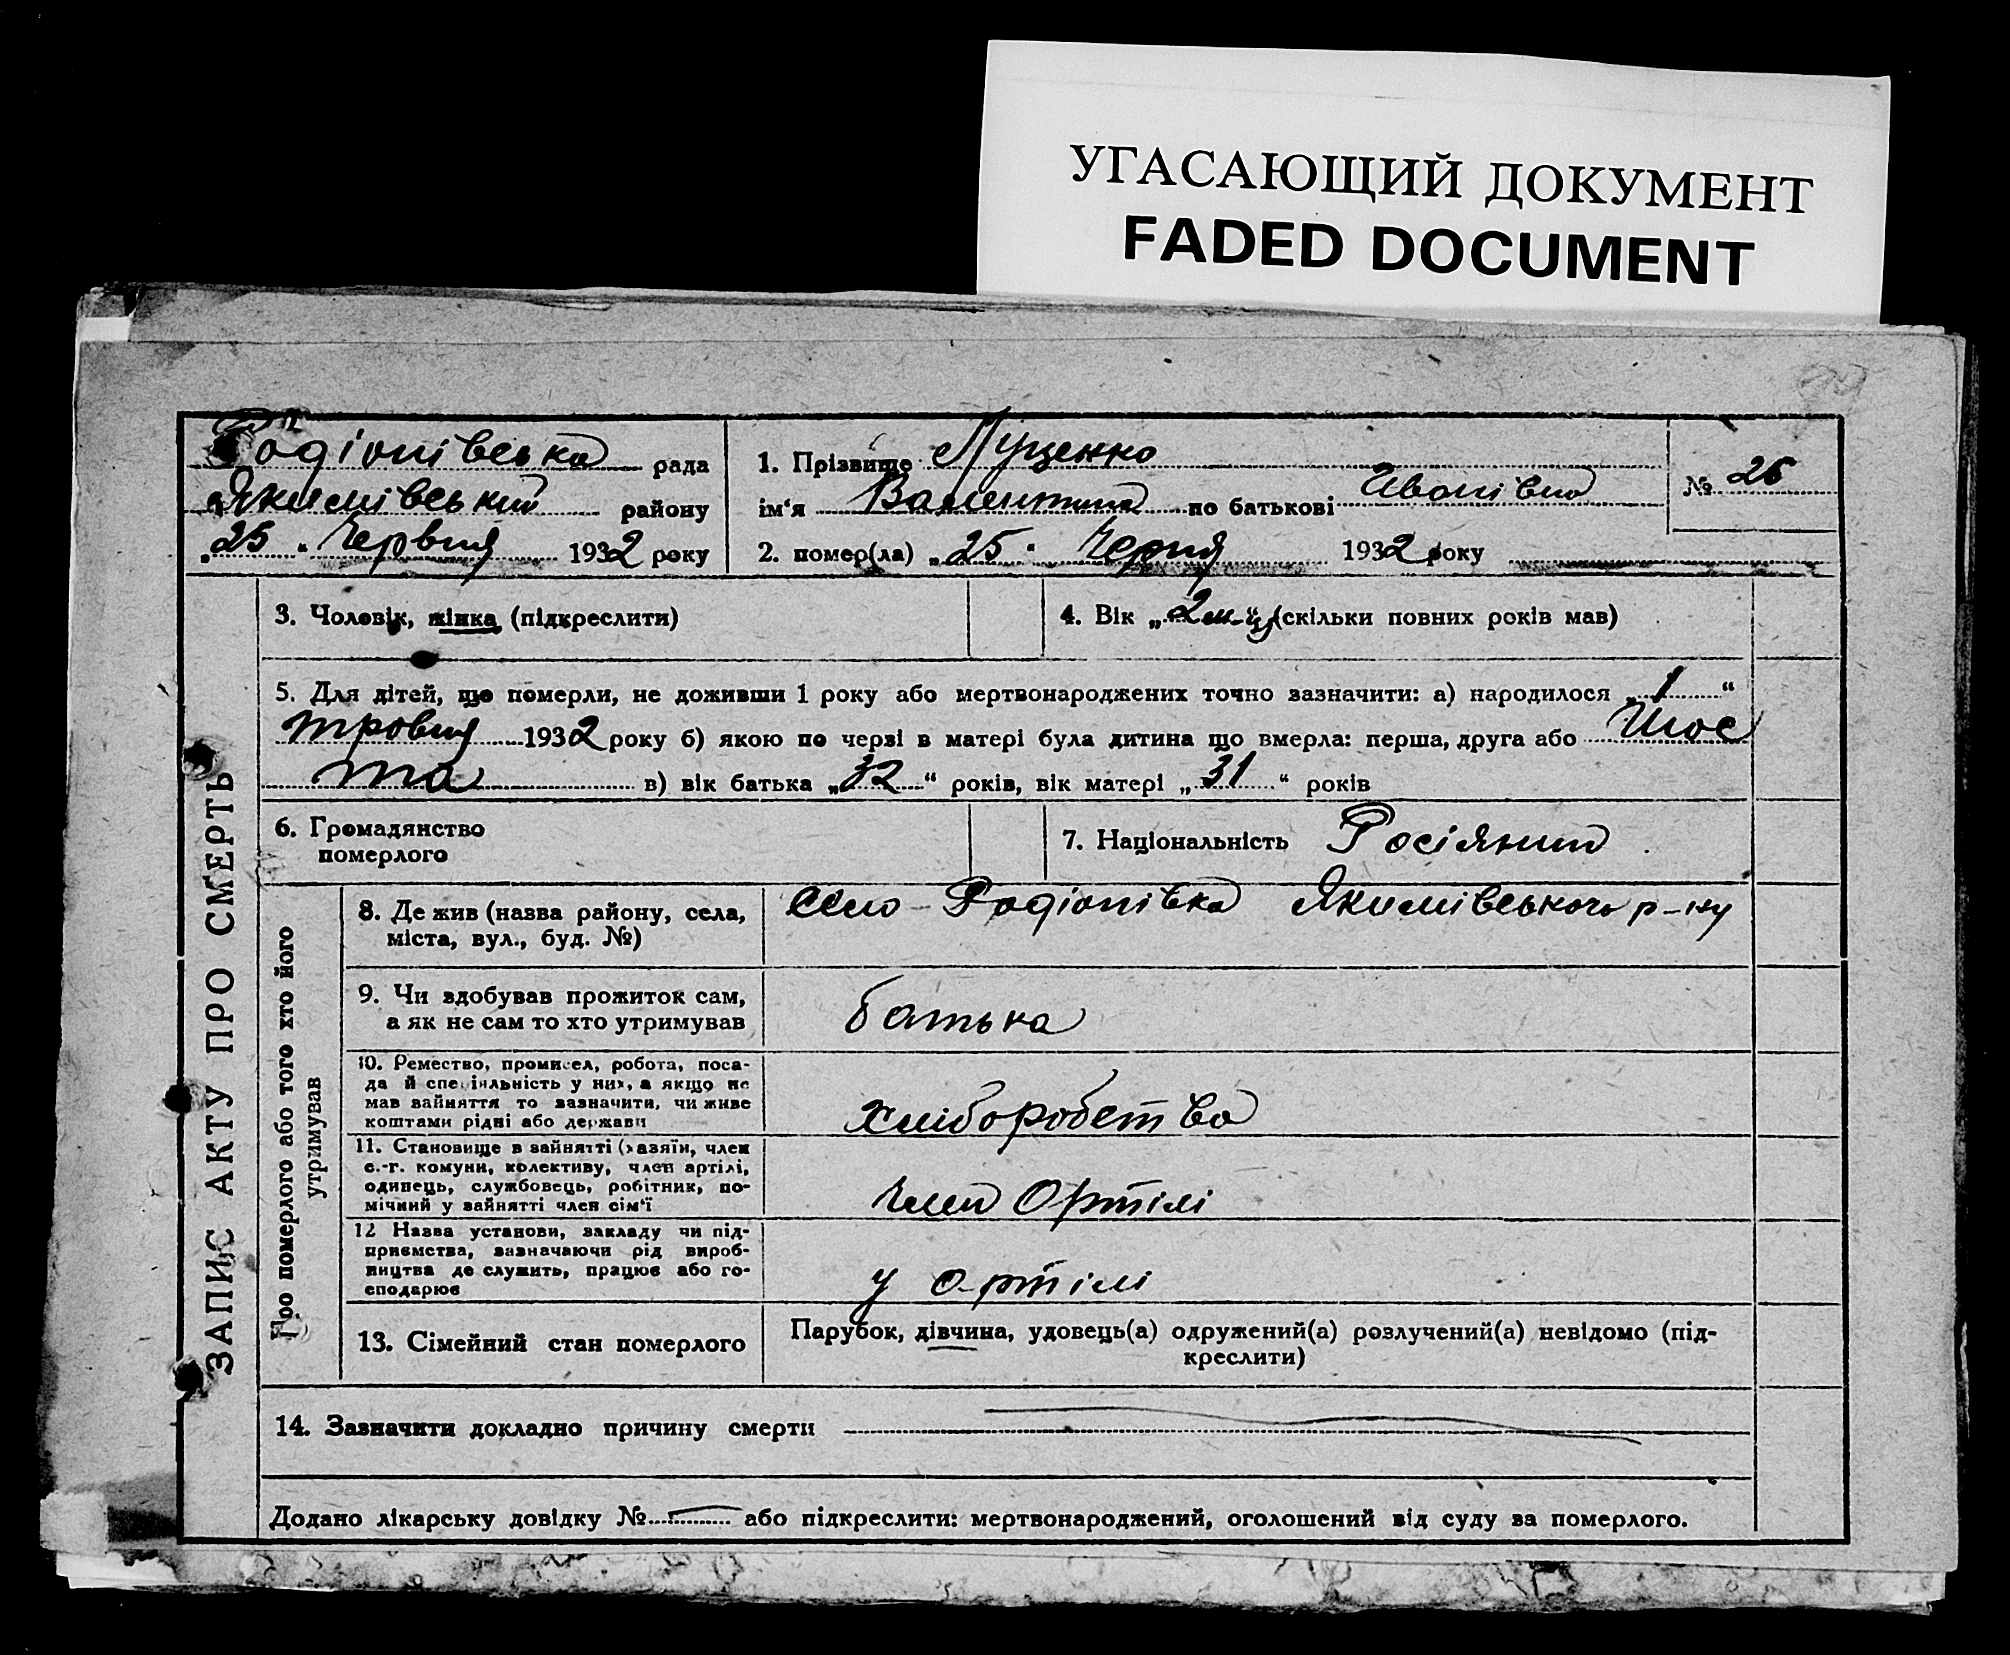 УГАСАЮЩИЙ ДОКУМЕНТ
FADED DOCUMENT
Родіонівська рада
Якимівський району
„25“ Червня 1932 року
1. Прізвище Луценко
ім‘я Валентина по батькові Іванівна
2. помер(ла) „25“ Черня 1932 року
№ 26
ЗАПИС АКТУ ПРО СМЕРТЬ
3. Чоловік, жінка (підкреслити)
4. Вік „2 м-ц“ (скільки повних років мав)
5. Для дітей, що померли, не доживши 1 року або мертвонароджених точно зазначити: а) народилося „1“
тровня 1932 року б) якою по черзі в матері була дитина що вмерла: перша, друга або Шос
та в) вік батька „32“ років, вік матері „31“ років
6. Громадянство
померлого
7. Національність Росіянин
Про померлого або того хто його
утримував
8. Де жив (назва району, села,
міста, вул., буд. №)
Село Родіонівка Якимівського р-ну
9. Чи здобував прожиток сам,
а як не сам то хто утримував
батька
10. Ремество, промисел, робота, поса-
да й спеціяльність у них, а якщо не
мав зайняття то зазначити, чи живе
коштами рідні або держави
хліборобство
11. Становище в зайнятті (хазяїн, член
с.-г. комуни, колективу, член артілі,
одинець, службовець, робітник, по-
мічний у зайнятті член сім‘ї
Член Ортілі
12 Назва установи, закладу чи під-
приємства, зазначаючи рід вироб-
ництва де служить, працює або го-
сподарює
у ортілі
13. Сімейний стан померлого
Парубок, дівчина, удовець(а) одружений(а) розлучений(а) невідомо (під-
креслити)
14. Зазначити докладно причину смерти
Додано лікарську довідку № або підкреслити: мертвонароджений, оголошений від суду за померлого.